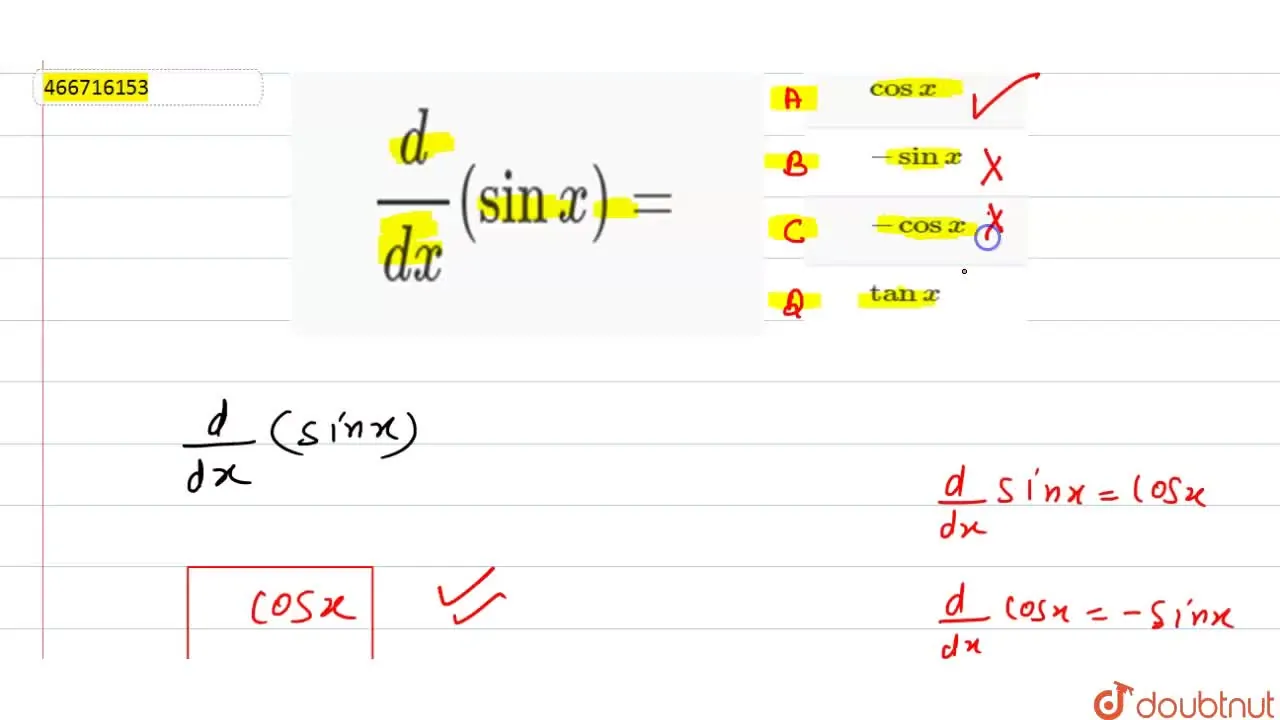 466716153
d/dx (sin x) =
A cos x ✓
B − sin x X
C − cos x X
D tan x
d/dx (sinx)
cosx ✓✓
d/dx sinx = cosx
d/dx cosx = -sinx
doubtnut